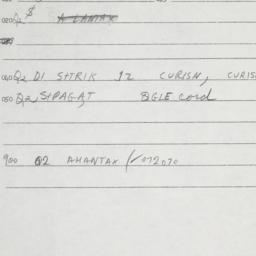 020 Q2 $ A LANTAX
040 Q2 DI SHTRIK 12 CURISN, CURIS
050 Q2, SHPAGAT, BGLE cord
900 Q2 AHANTAX /✓072070